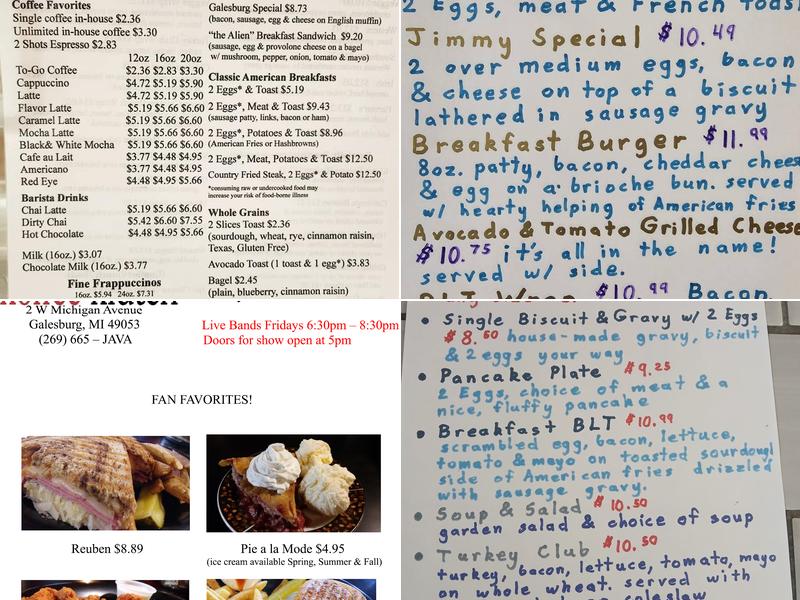 Coffee Favorites
Single coffee in-house $2.36
Unlimited in-house coffee $3.30
2 Shots Espresso $2.83
12oz 16oz 20oz
To-Go Coffee $2.36 $2.83 $3.30
Cappuccino $4.72 $5.19 $5.90
Latte $4.72 $5.19 $5.90
Flavor Latte $5.19 $5.66 $6.60
Caramel Latte $5.19 $5.66 $6.60
Mocha Latte $5.19 $5.66 $6.60
Black& White Mocha $5.19 $5.66 $6.60
Cafe au Lait $3.77 $4.48 $4.95
Americano $3.77 $4.48 $4.95
Red Eye $4.48 $4.95 $5.66
Barista Drinks
Chai Latte $5.19 $5.66 $6.60
Dirty Chai $5.42 $6.60 $7.55
Hot Chocolate $4.48 $4.95 $5.66
Milk (16oz.) $3.07
Chocolate Milk (16oz.) $3.77
Fine Frappuccinos
16oz. $5.94 24oz. $7.31
Galesburg Special $8.73
(bacon, sausage, egg & cheese on English muffin)
“the Alien” Breakfast Sandwich $9.20
(sausage, egg & provolone cheese on a bagel
w/ mushroom, pepper, onion, tomato & mayo)
Classic American Breakfasts
2 Eggs* & Toast $5.19
2 Eggs*, Meat & Toast $9.43
(sausage patty, links, bacon or ham)
2 Eggs*, Potatoes & Toast $8.96
(American Fries or Hashbrowns)
2 Eggs*, Meat, Potatoes & Toast $12.50
Country Fried Steak, 2 Eggs* & Potato $12.50
*consuming raw or undercooked food may
increase your risk of food-borne illness
Whole Grains
2 Slices Toast $2.36
(sourdough, wheat, rye, cinnamon raisin,
Texas, Gluten Free)
Avocado Toast (1 toast & 1 egg*) $3.83
Bagel $2.45
(plain, blueberry, cinnamon raisin)
2 Eggs, meat & French Toast
Jimmy Special $10.49
2 over medium eggs, bacon
& cheese on top of a biscuit
lathered in sausage gravy
Breakfast Burger $11.99
8oz. patty, bacon, cheddar chees
& egg on a brioche bun. served
w/ hearty helping of American fries
Avocado & Tomato Grilled Cheese
$10.75 it's all in the name!
served w/ side.
BLT Wrap $10.99 Bacon,
2 W Michigan Avenue
Galesburg, MI 49053
(269) 665 – JAVA
Live Bands Fridays 6:30pm – 8:30pm
Doors for show open at 5pm
FAN FAVORITES!
Reuben $8.89
Pie a la Mode $4.95
(ice cream available Spring, Summer & Fall)
• Single Biscuit & Gravy w/ 2 Eggs
$8.50 house-made gravy, biscuit
& 2 eggs your way
• Pancake Plate $9.25
2 Eggs, choice of meat & a
nice, fluffy pancake
• Breakfast BLT $10.99
scrambled egg, bacon, lettuce,
tomato & mayo on toasted sourdough
side of American fries drizzled
with sausage gravy.
• Soup & Salad $10.50
garden salad & choice of soup
• Turkey Club $10.50
turkey, bacon, lettuce, tomato, mayo
on whole wheat. served with
coleslaw